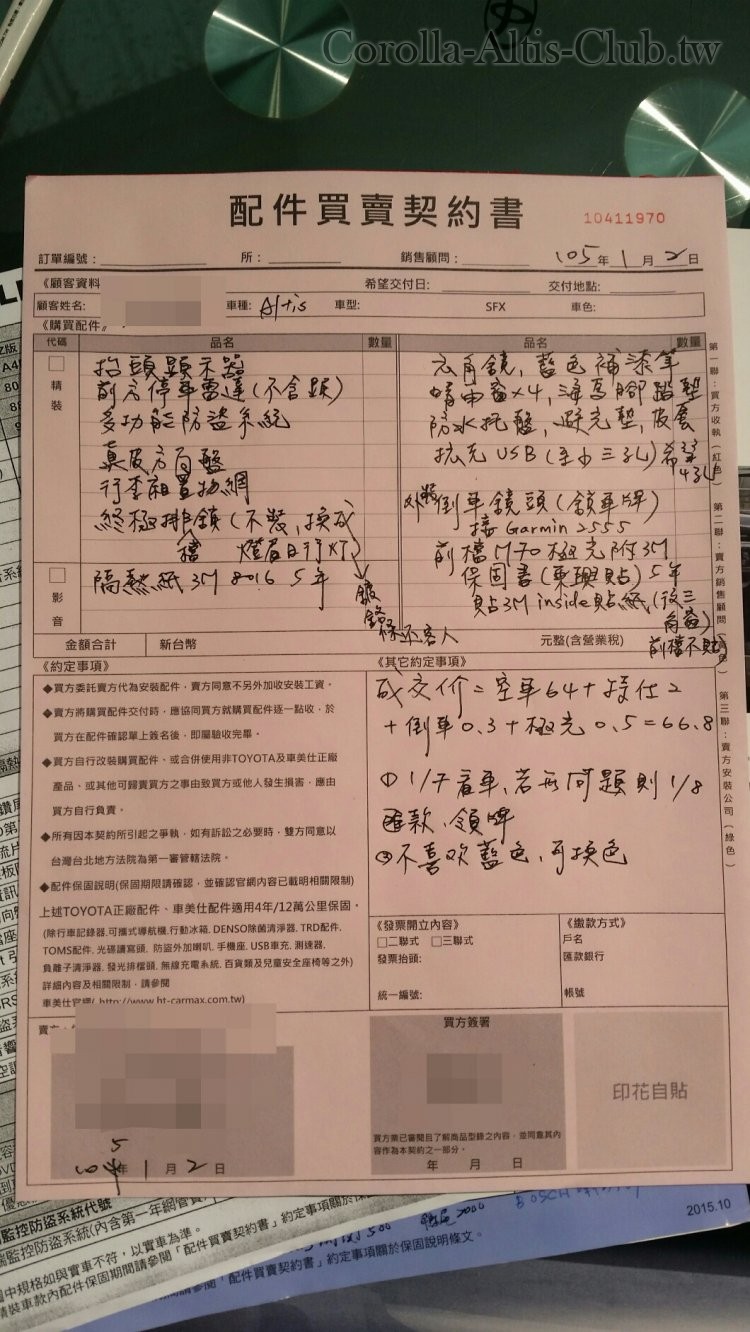 Corolla-Altis-Club.tw
配件買賣契約書
10411970
訂單編號：
所：
銷售顧問：
105年 1 月 2 日
《顧客資料
希望交付日:
交付地點:
顧客姓名:
車種: Altis
車型:
SFX
車色:
《購買配件》
代碼
品名
數量
品名
數量
精裝
抬頭顯示器
前方停車雷達(不含頭)
多功能防盜系統
真皮方向盤
行李廂置物網
終極排檔鎖(不裝,換成
燈眉日行灯)
鍍鉻
保不客人
影音
隔熱紙 3M 8016 5年
六角鏡,藍色補漆筆
晴雨窗x4,海馬腳踏墊
防水托盤,避光墊,皮套
擴充USB(至少三孔)希望
4孔
外裝倒車鏡頭(領車牌)
接Garmin 2555
前檔M70極光附3M
保固書(東興貼)5年
貼3M inside貼紙(後三
角窗)
前檔不貼
金額合計
新台幣
元整(含營業稅)
《約定事項》
◆買方委託賣方代為安裝配件，賣方同意不另外加收安裝工資。
◆賣方將購買配件交付時，應協同買方就購買配件逐一點收，於
買方在配件確認單上簽名後，即屬驗收完畢。
◆買方自行改裝購買配件、或合併使用非TOYOTA及車美仕正廠
產品、或其他可歸責買方之事由致買方或他人發生損害，應由
買方自行負責。
◆所有因本契約所引起之爭執，如有訴訟之必要時，雙方同意以
台灣台北地方法院為第一審管轄法院。
◆配件保固說明(保固期限請確認，並確認官網內容已載明相關限制)
上述TOYOTA正廠配件、車美仕配件適用4年/12萬公里保固。
(除行車記錄器,可攜式導航機,行動冰箱, DENSO除菌清淨器, TRD配件,
TOMS配件, 光碟讀寫頭, 防盜外加喇叭, 手機座, USB車充, 測速器,
負離子清淨器, 發光排檔頭, 無線充電系統, 百貨類及兒童安全座椅等之外)
詳細內容及相關限制，請參閱
車美仕官網( http://www.ht-carmax.com.tw)
《其它約定事項》
成交價=空車64+投仕2
+倒車0.3+極光0.5=66.8
① 1/7看車,若無問題則1/8
匯款、領牌
②不喜歡藍色,可換色
《發票開立內容》
□二聯式 □三聯式
發票抬頭:
統一編號:
《繳款方式》
戶名
匯款銀行
帳號
第一聯：買方收執（紅色）
第二聯：賣方銷售顧問
第三聯：賣方安裝公司（綠色）
賣方
105年 1 月 2 日
買方簽署
買方業已審閱且了解商品型錄之內容，並同意其內
容作為本契約之一部分。
年 月 日
印花自貼
2015.10
監控防盜系統代號
端監控防盜系統(內含第一年網管費)
圖中規格如與實車不符，以實車為準。
精裝車款內配件保固期間請參閱「配件買賣契約書」約定事項關於保
「配件買賣契約書」約定事項關於保固說明條文。